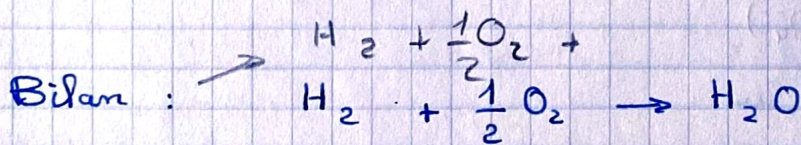 H₂ + 1/2 O₂ +
Bilan : → H₂ + 1/2 O₂ → H₂O